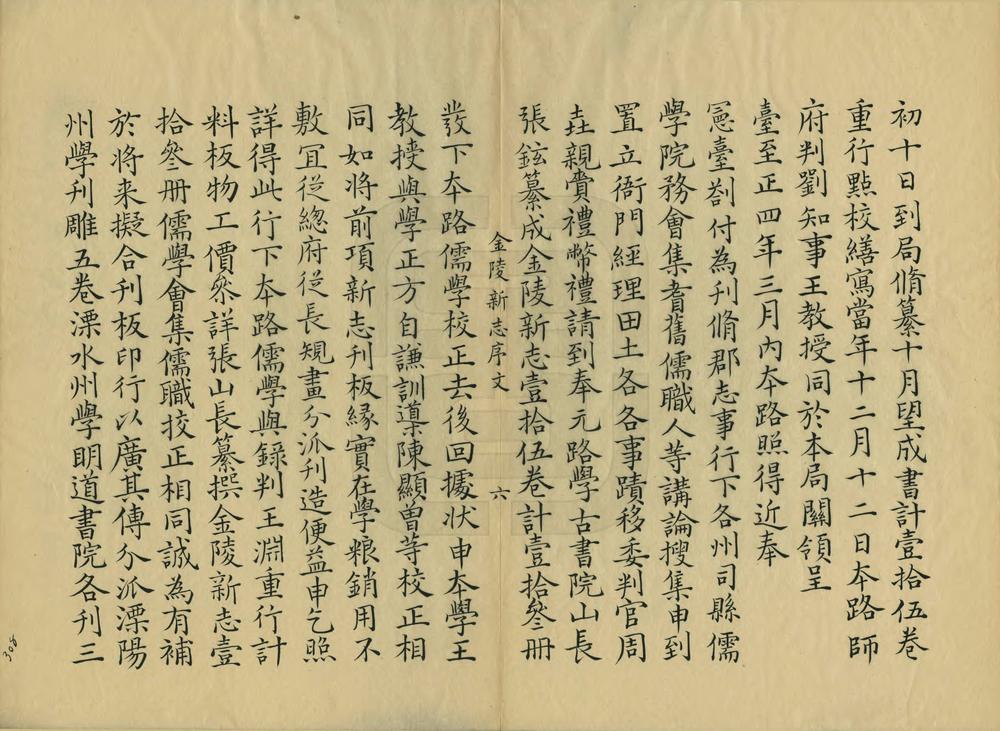 初十日到局脩纂十月望成書計壹拾伍卷
重行㸃校繕寫當年十二月十二日本路師
府判劉知事王教授同於本局關領呈
臺至正四年三月内本路照得近奉
憲臺劄付為刋脩郡志事行下各州司縣儒
學院務會集耆舊儒職人等講論搜集申到
置立衙門經理田土各各事蹟移委判官周
垚親賫禮幣禮請到奉元路學古書院山長
張鉉纂成金陵新志壹拾伍卷計壹拾叅册
金陵新志序文 六
發下本路儒學校正去後回據状申本學王
教授與學正方自謙訓導陳顯曾等校正相
同如將前項新志刋板縁實在學粮銷用不
敷冝從總府從長規畫分派刋造便益申乞照
詳得此行下本路儒學與錄判王淵重行計
料板物工價叅詳張山長纂撰金陵新志壹
拾叅册儒學會集儒職挍正相同誠為有補
於將来擬合刋板印行以廣其傳分派溧陽
州學刋雕五卷溧水州學明道書院各刋三
308